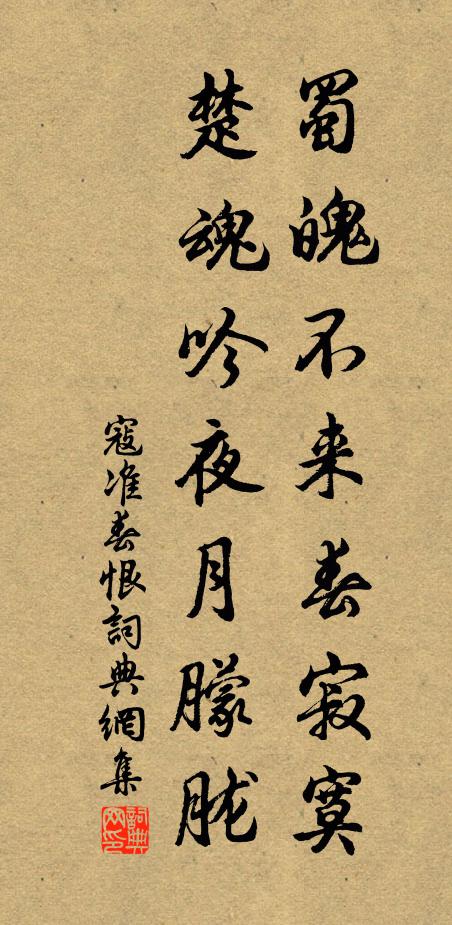 蜀魄不来春寂寞
楚魂吟夜月朦胧
寇准春恨詞典網集
詞典网印